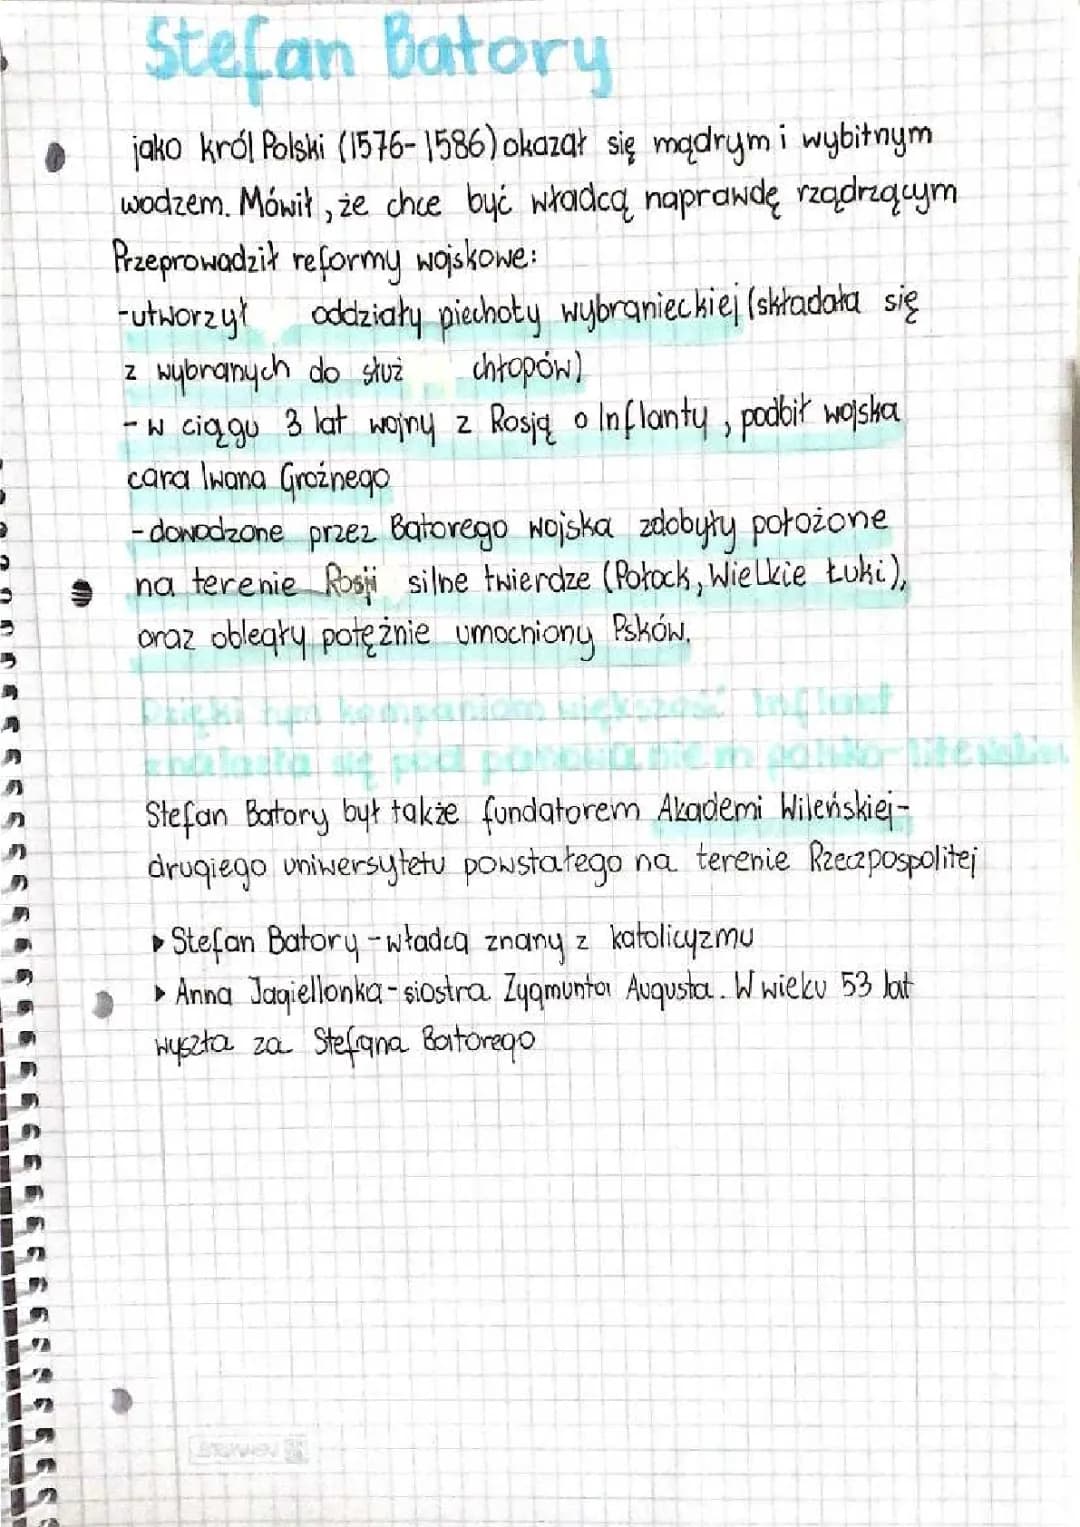 Stefan Batory
jako król Polski (1576-1586) okazał się mądrym i wybitnym
wodzem. Mówił, że chce być władcą naprawdę rządrzącym
Przeprowadził reformy wojskowe:
-utworzył oddziały piechoty wybranieckiej (składała się
z wybranych do służ chłopów)
-w ciągu 3 lat wojny z Rosją o Inflanty, podbił wojska
cara Iwana Groźnego
-dowodzone przez Batorego wojska zdobyły położone
na terenie Rosji silne twierdze (Połock, Wielkie Łuki),
oraz obległy potężnie umocniony Psków.
Dzięki tym kompaniom większość Inflant
znalazła się pod panowaniem polsko-litewskim
Stefan Batory był także fundatorem Akademi Wileńskiej-
drugiego uniwersytetu powstałego na terenie Rzeczpospolitej
▸ Stefan Batory -władcą znany z katolicyzmu
▸ Anna Jagiellonka-siostra Zygmunta Augusta. W wieku 53 lat
wyszła za Stefana Batorego